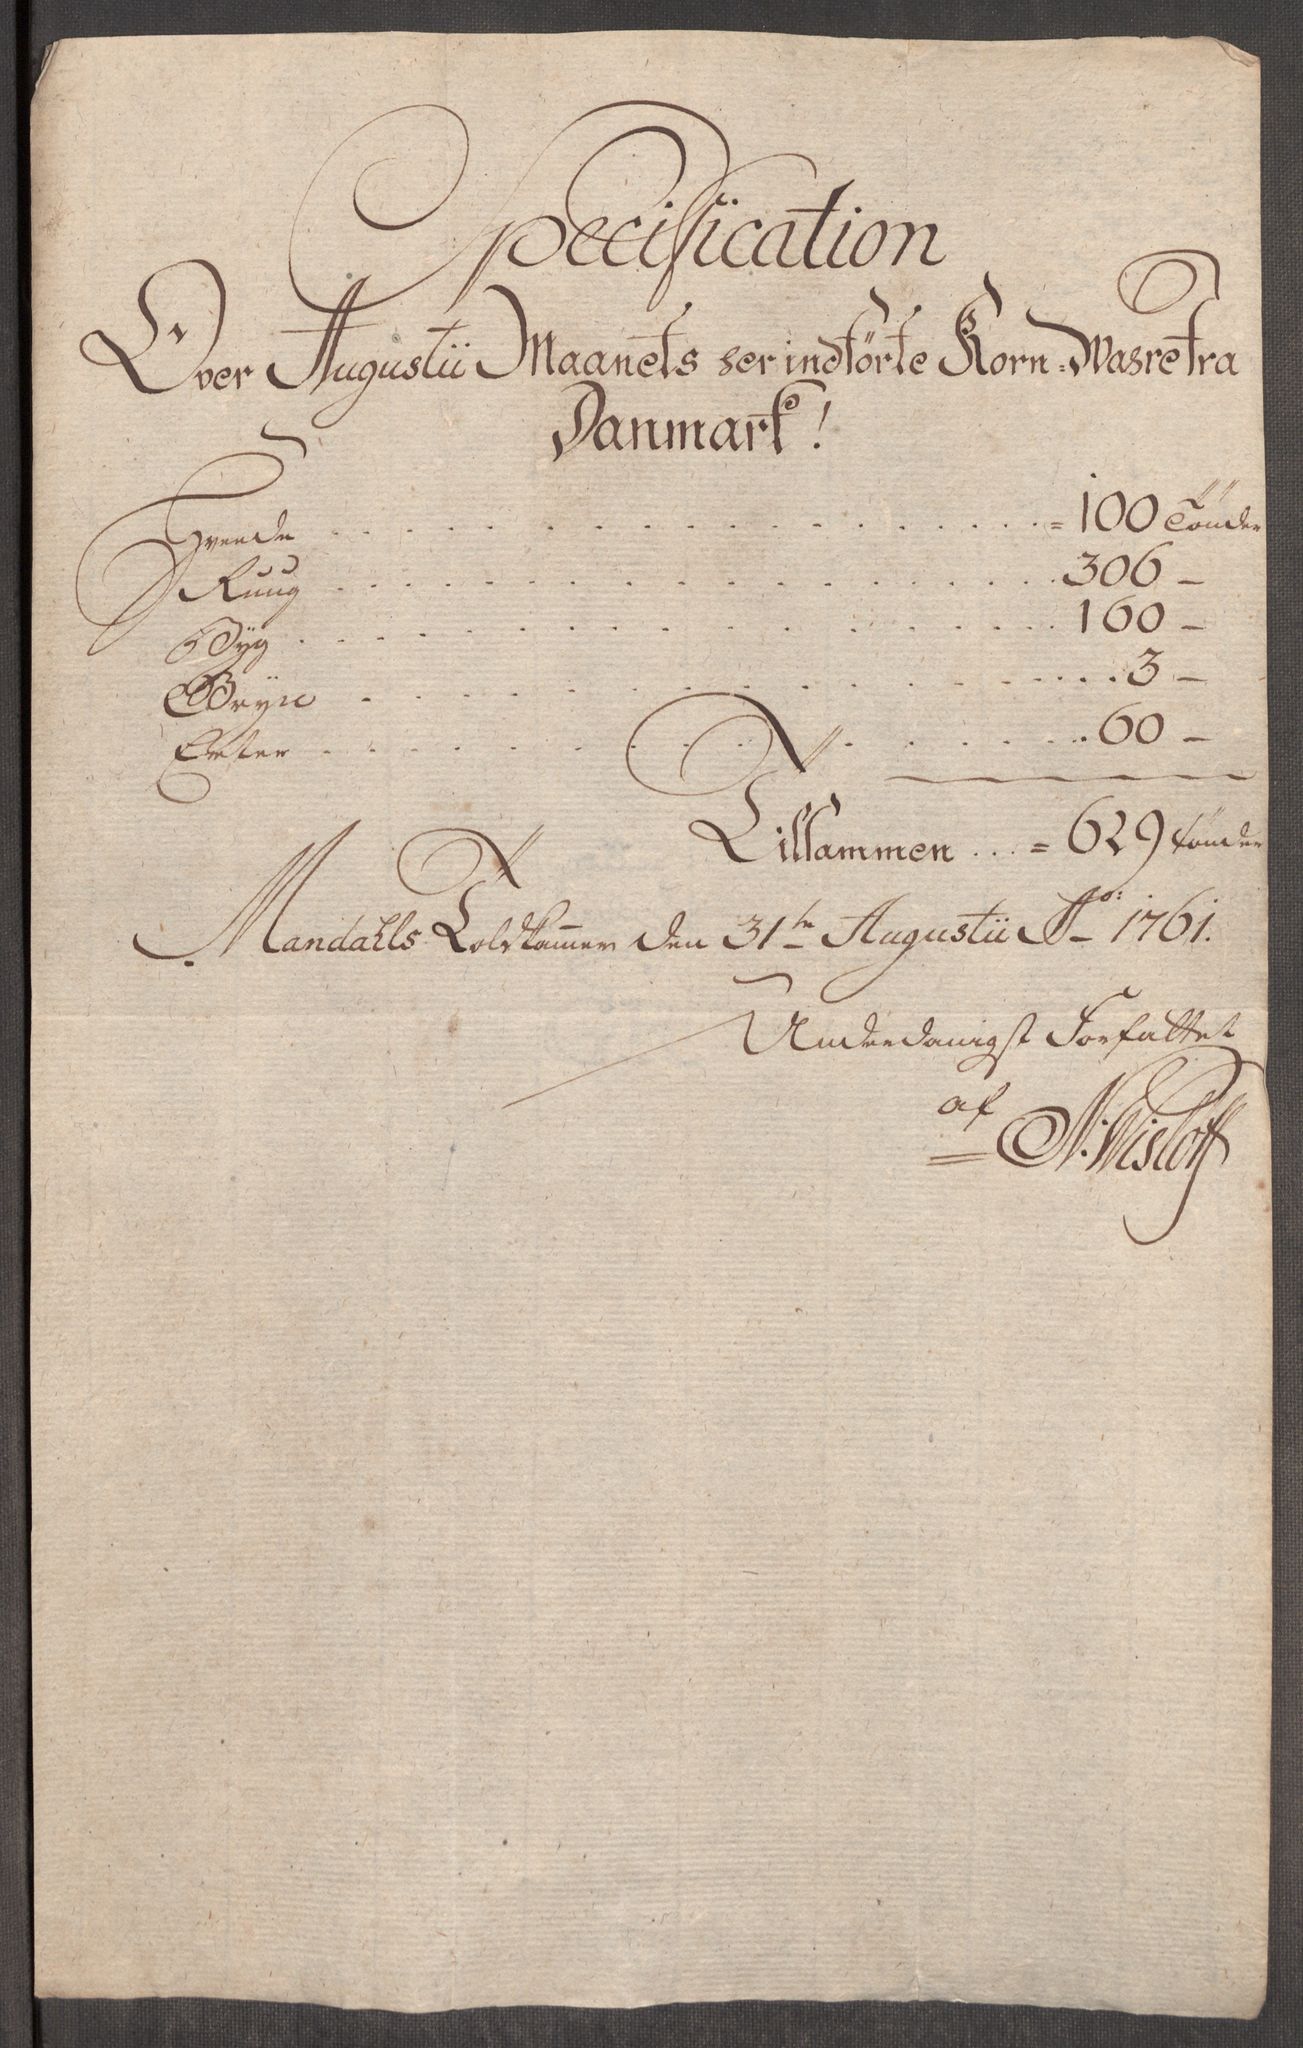 Specification
Over Augustii Maanets her indförte Korn-Wahre fra
Danmark!
Hvede = 100 Tönder
Ruug 306 -
Byg 160 -
Gryn 3 -
Erter 60 -
Tillsammen = 629 tönder
Mandahls Toldkammer den 31te Augustii Ao: 1761.
Underdanigst Forfattet
af N: Wisloff